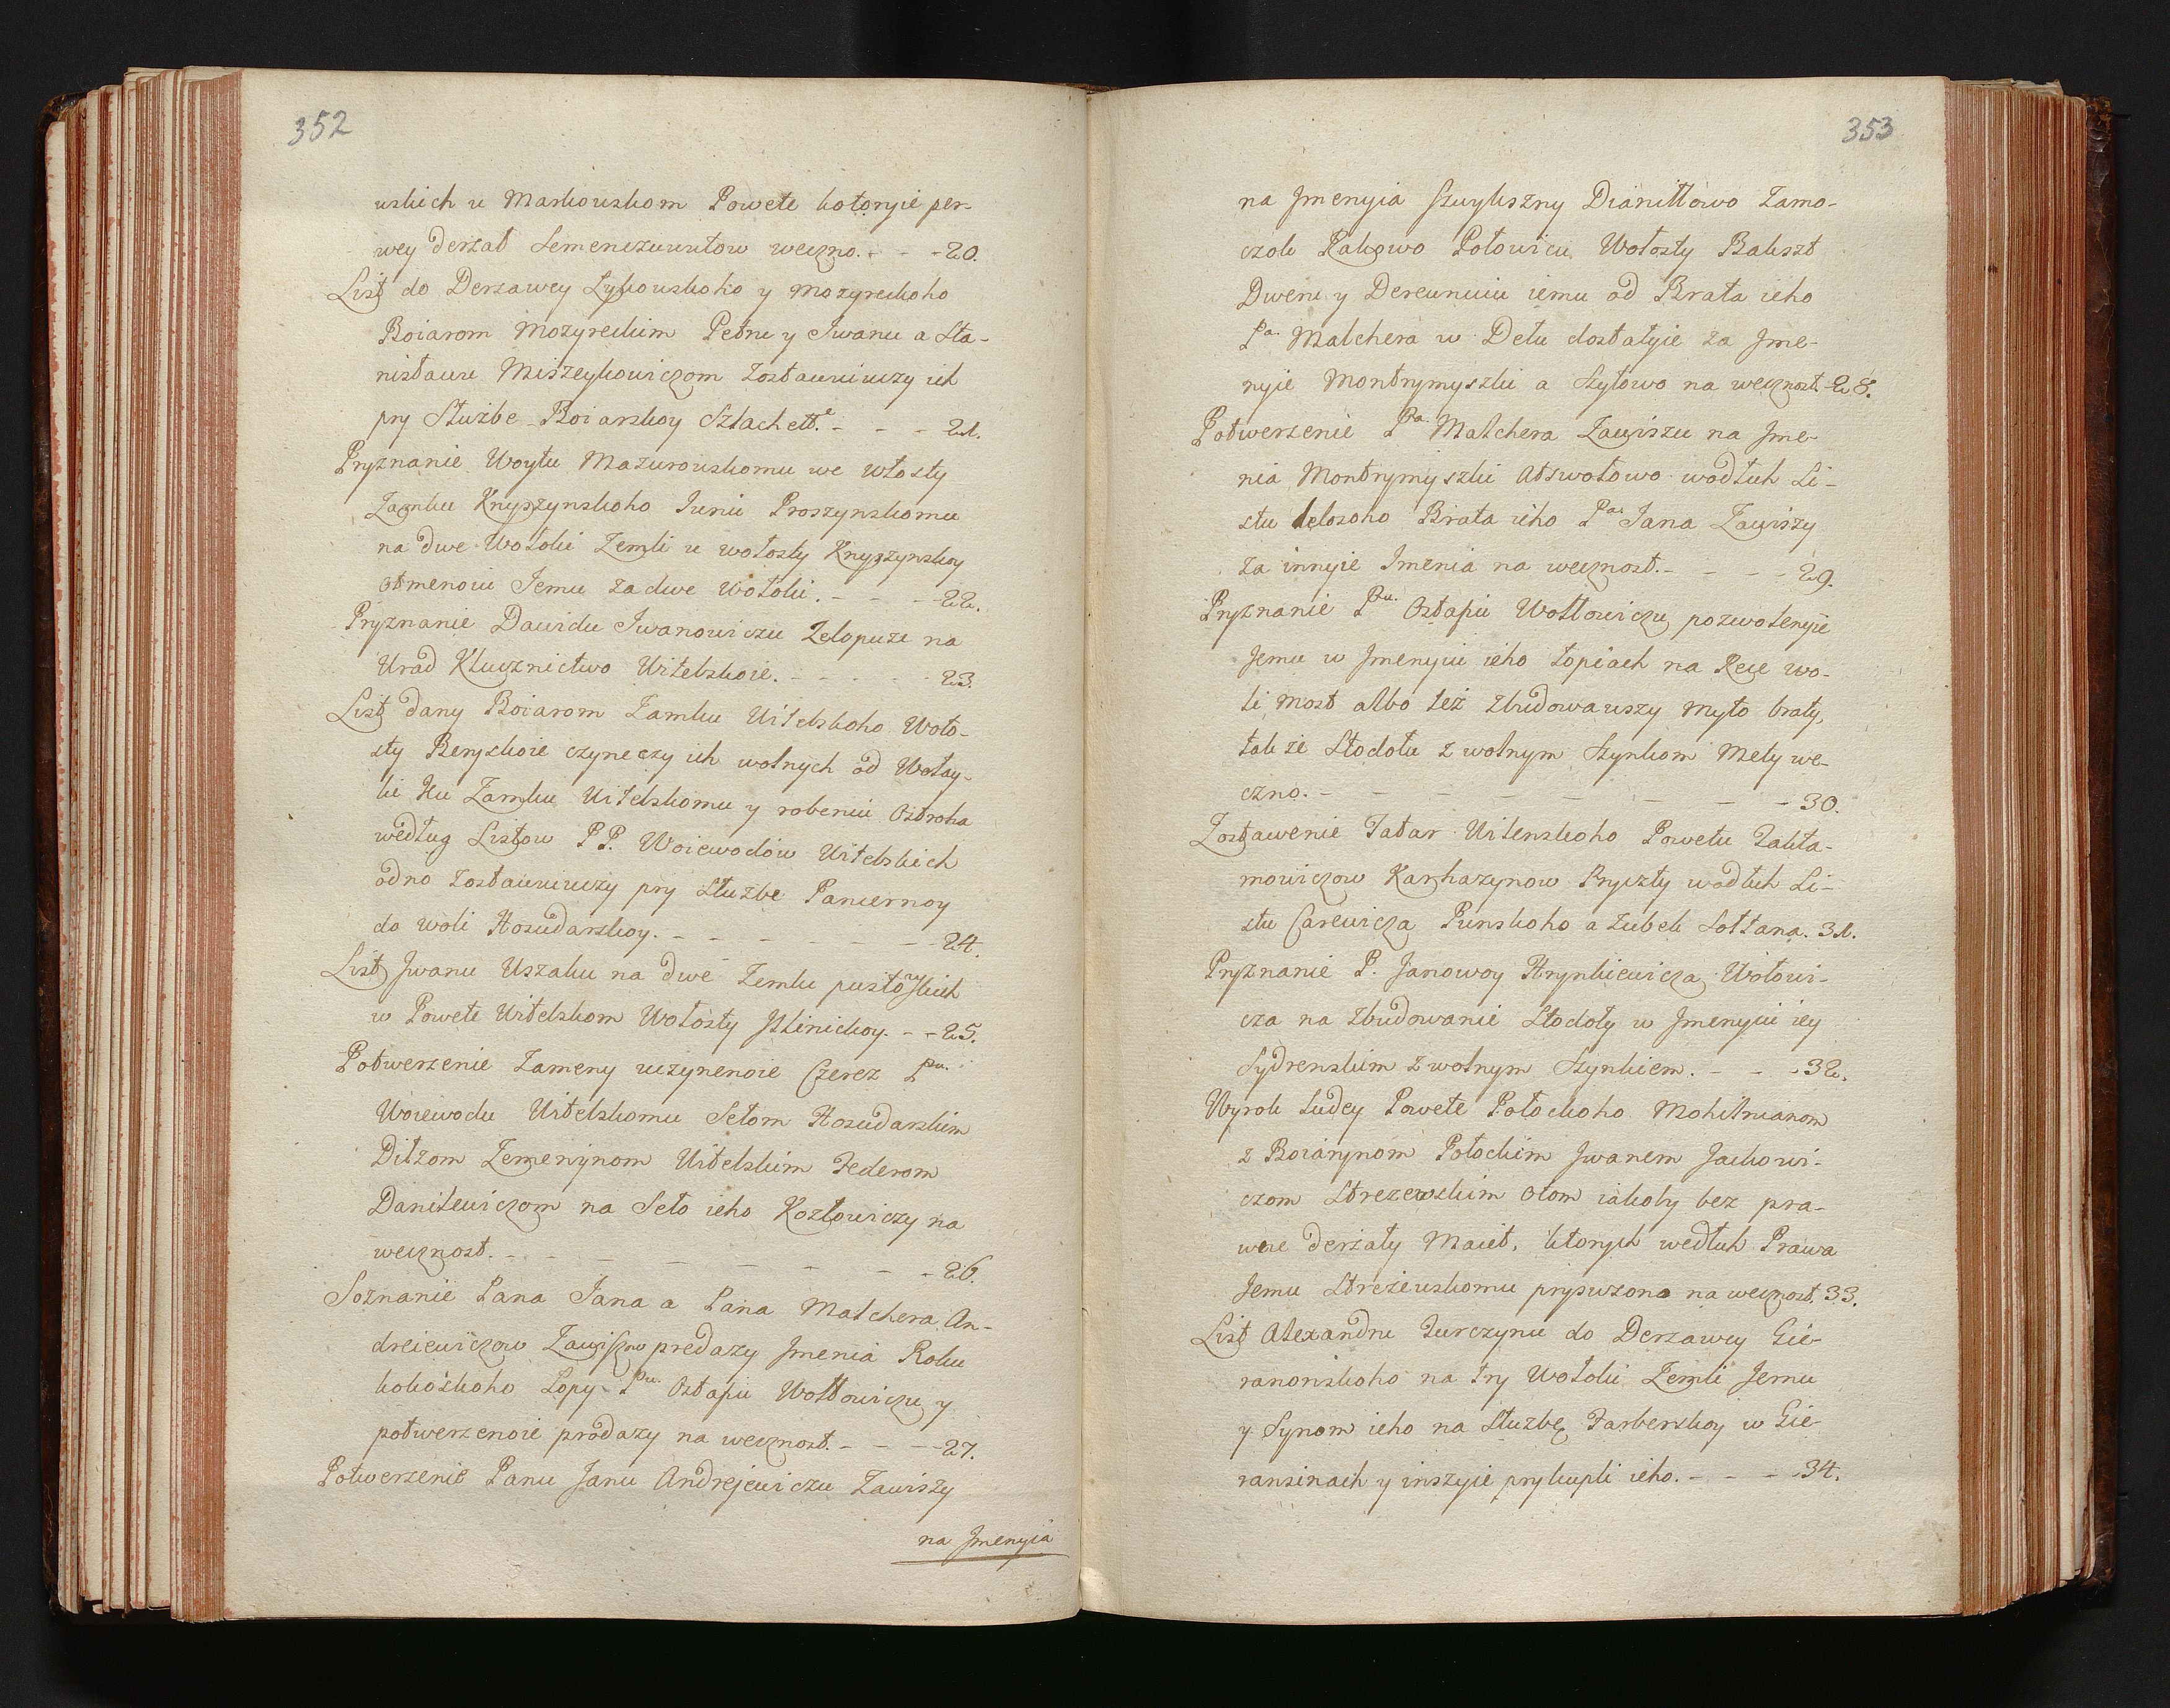 352
uskich u Markouskom Powete kotoryie per-
wey derżał Semenczuuutow weczno. - - - 20.
List do Derzawcy Lykouskoho y Mozyreckoho
Boiarom Mozyreckim Petru y Iwanu a Sta-
nisławu Miszeykowiczom zostawuiuczy ich
pry Służbe Boiarskoy Szlachett.e - - - 21.
Pryznanie Woytu Mazurouskomu we włosty
Zamku Knyszynskoho Iuriu Proszynskomu
na dwe Wołoki Zemli u wołosty Knyszynskoy
otmenoiu Jemu za dwe Wołoki. - - - 22.
Pryznanie Dawidu Iwanowiczu Zelopuze na
Urad Kluoznictwo Witebskoie. - - - - - 23.
List dany Boiarom Zamku Witebskoho Woło-
sty Beryskoie czyneczy ich wolnych od Wołay-
ki Ku Zamku Witebskomu y robeniu Ostroha
według Listow P P. Woiewodów Witebskich
odno zostawuiuczy pry służbe Pancernoy
do woli Hosudarskoy. - - - - - - - 24.
List Iwanu Uszaku na dwe Zemlu pustowskich
w Powete Witebskom Wołosty Ilinickoy. - - 25.
Potwerzenie Zameny uczynenoie Czerez Pu.
Woiewodu Witebskomu Sełom Hosudarskim
Dilzom Zemeninom Witebskim Federom
Danilewiczom na Seło ieho Kozłowiczy na
wecznost. - - - - - - - 26.
Soznanie Pana Jana a Pana Malchera An-
dreiewiczow Zawiszow predazy Jmenia Roku
kokoskoho Łopy Pu. Ostapiu Wołłowiczu y
potwerzenoie prodazy na wecznost. - - - - 27.
Potwerzenie Panu Janu Andrejewiczu Zawiszy
na Jmenyia
353
na Jmenyia Szuykszny Dianiłłowo Zamo-
czok Rakowo Połowicu Wołosty Bakszt
Dweru y Dereuniu iemu od Brata ieho
Pa. Malchera w Delu dostałyie za Jme-
nyie Montrymyszki a Szyłowo na wecznost. 28.
Potwerzenie Pa. Malchera Zawiszu na Jme-
nia Montrymyszki Atswołowo wodłuh Li-
stu delosoho Brata ieho Pa. Jana Zawiszy
za innyie Imenia na wecznost. - - - - 29.
Pryznanie Pu. Ostapiu Wołłowiczu pozwolenyie
Jemu w Jmenyiu ieho Łopiach na Rece wo-
li most albo też zbudowawszy myto braty,
tak że Stodołu z wolnym Szynkom Mety we-
czno. - - - - - - - - 30.
Zostawenie Tatar Wilenskoho Powetu Jakta-
mowiczow Karhazynow Pryszły wodłuh Li-
stu Carewicza Punskoho a Zubek Sołtana. 31.
Pryznanie P. Janowoy Hrynkiewicza Wołowi-
cza na zbudowanie Stodoły w Jmenyiu iey
Sydrenskim z wolnym Szynkiem. - - - 32.
Wyrok Ludey Powete Połockoho Mohilnianom
z Boiarynom Połockim Jwanem Jackowi-
czom Strezewskim otom iakoby bez pra-
wne derżały Maiet, ktorych wedłuh Prawa
Jemu Streżewskomu prysuzono na wecznost. 33.
List Alexandru Turczynu do Derzawcy Gie-
ranonskoho na try Wołoki Zemli Jemu
y Synom ieho na Służbę Farberskoy w Gie-
ransinach y inszyie prykupli ieho. - - - 34.